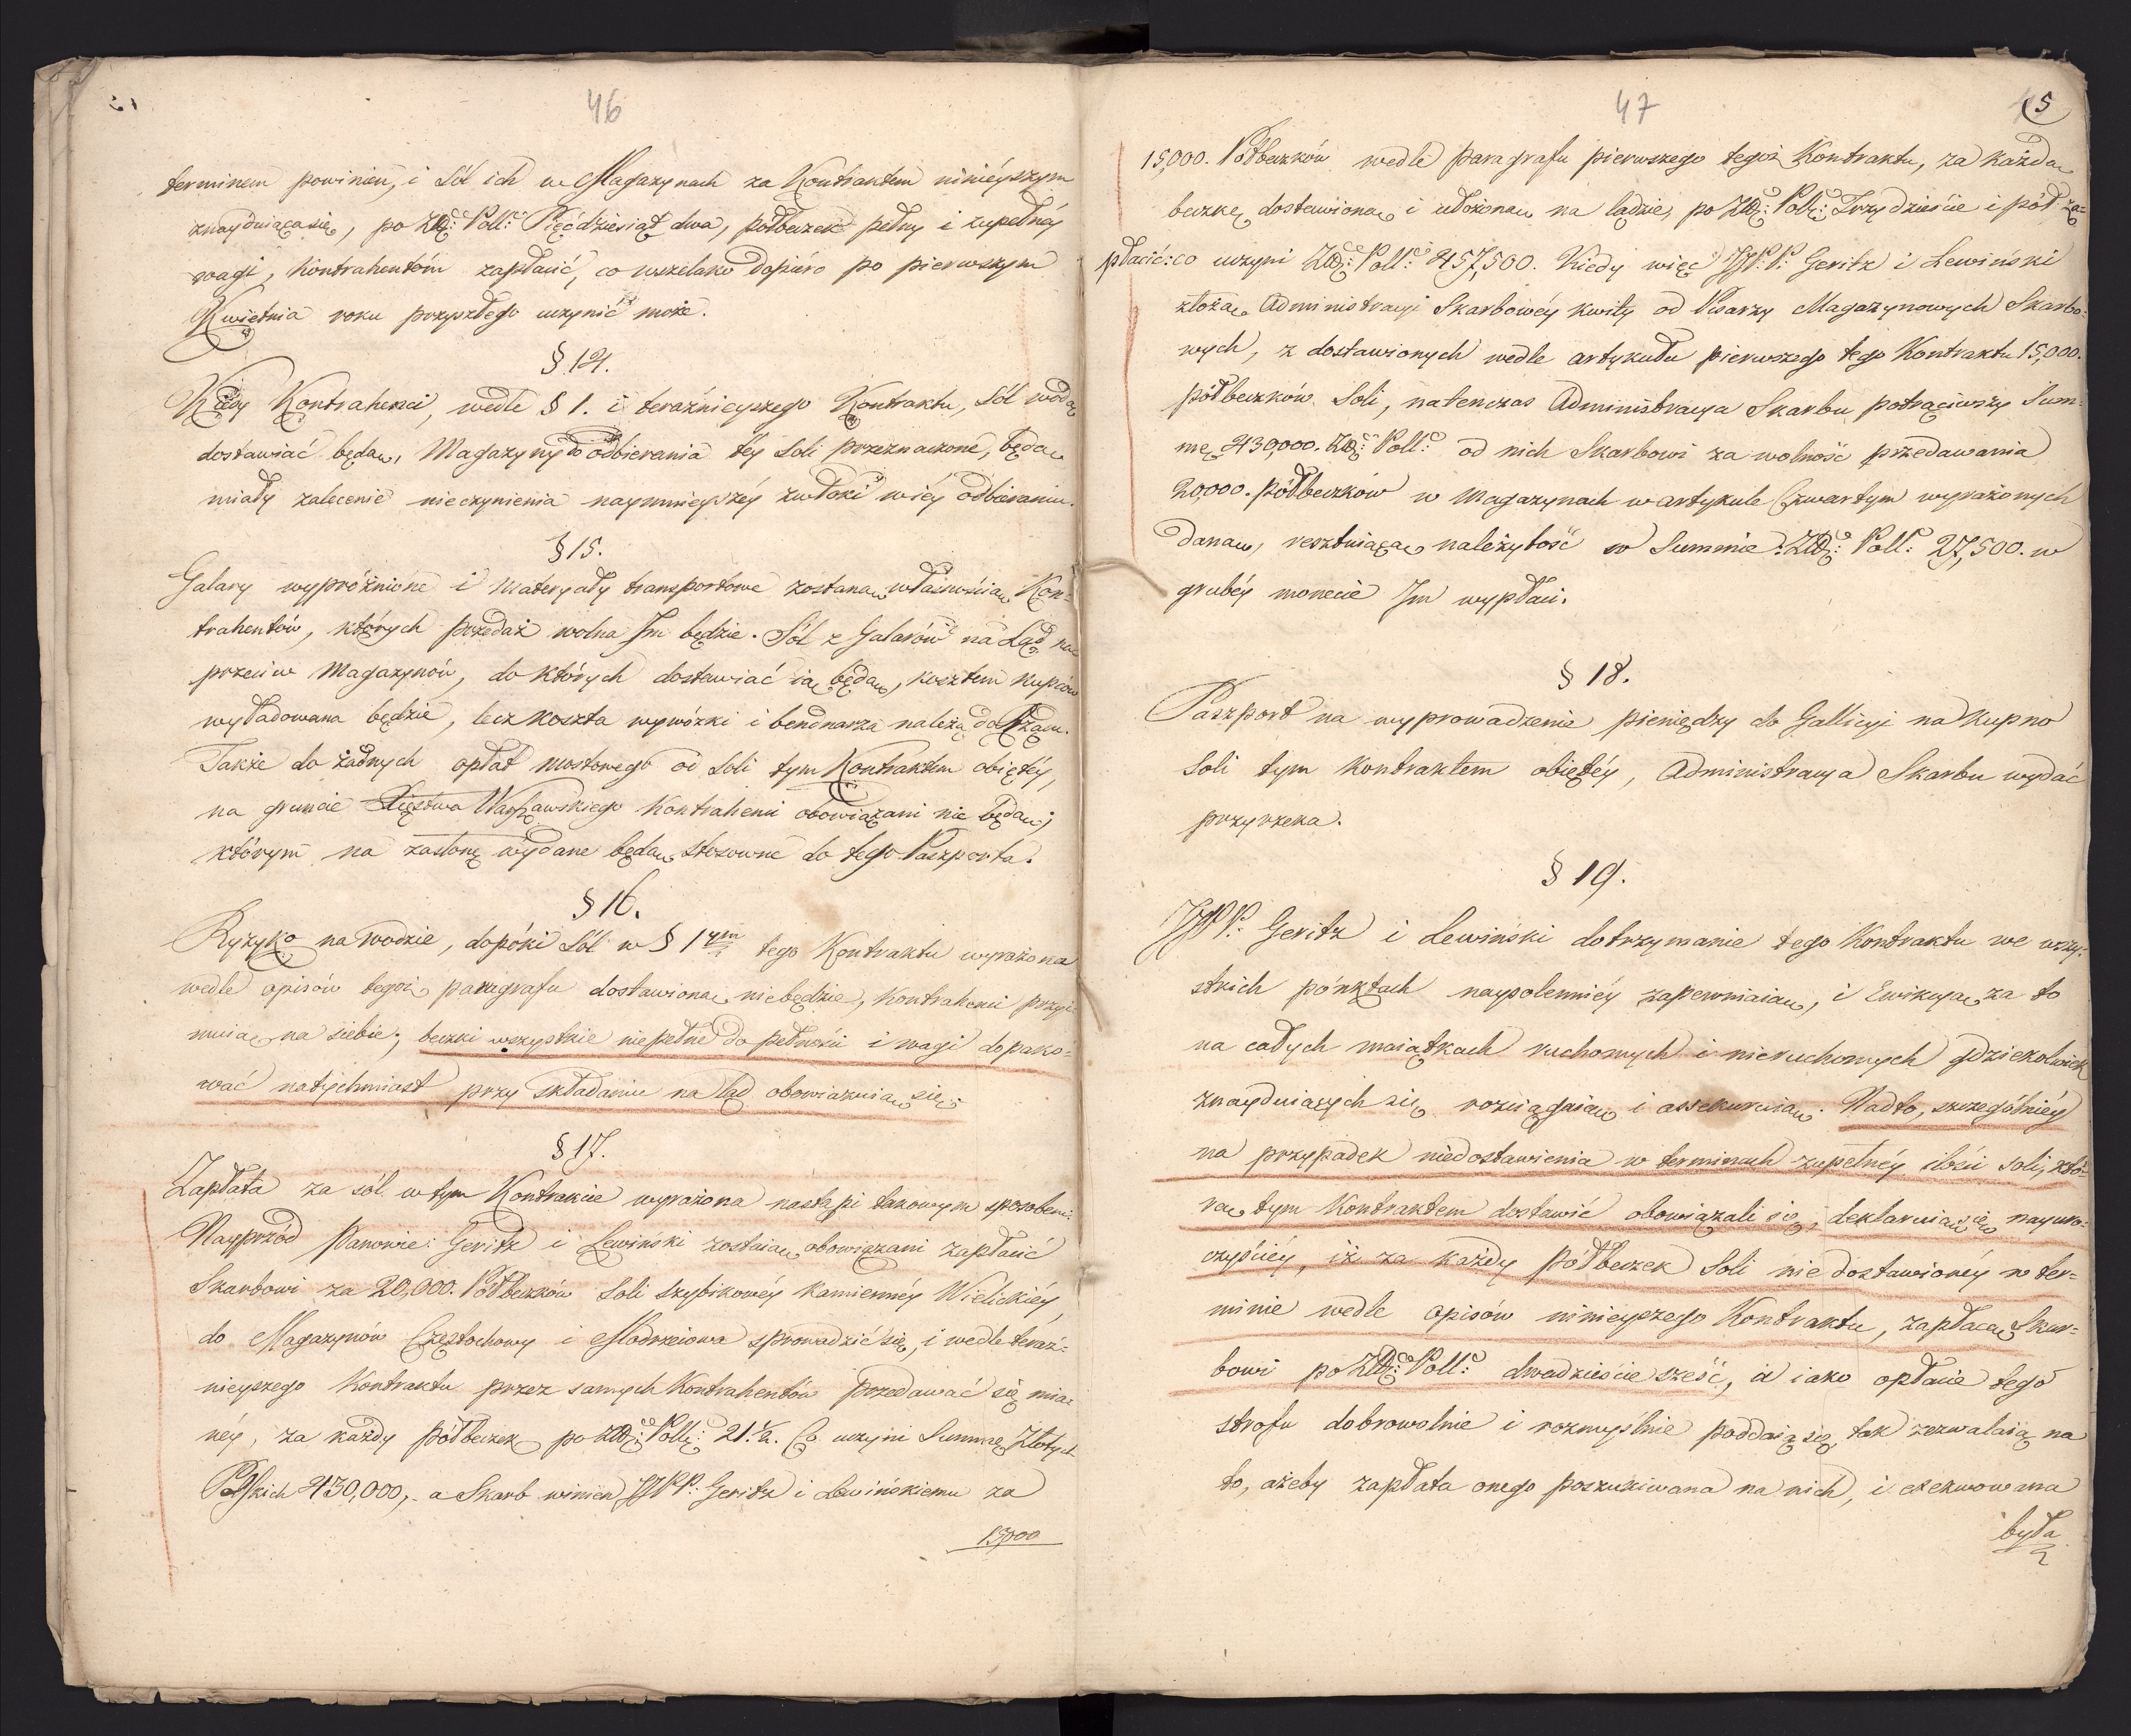 46
terminem powinien, i Sól ich w Magazynach za Kontraktem ninieyszym
znayduiąca się, po Złł: Poll: Pięćdziesiąt dwa, półbeczek pełny i zupełnéy
wagi, Kontrahentóm zapłacić, co wszelako dopiéro po pierwszym
Kwietnia roku przyszłego uczynić może.
§ 14.
Kiedy Kontrahenci, wedle § 1. i teraźnieyszego Kontraktu, Sól wodą
dostawiać będą, Magazyny do odbierania téy Soli przeznaczone, będą
miały zalecenie nieczynienia naymnieyszéy zwłoki w iéy odbieraniu.
§ 15.
Galary wypróżnione i materyały transportowe zostaną własnością Kon-
trahentów, których przedaż wolna Im będzie. Sól z Galarów na Ląd na
przeciw Magazynów, do których dostawiać ią będą, kosztem Kupców
wyładowana będzie, lecz koszta wywózki i bednarza należą do Rządu.
Także do żadnych opłat mostowego od Soli tym Kontraktem obiętéy,
na gruncie Xięstwa Warszawskiego Kontrahenci obowiązani nie będą;
którym na zasłonę wydane będą stosowne do tego Paszporta.
§ 16.
Ryzyko na wodzie, dopóki Sól w § 1ym tego Kontraktu wyrażona
wedle opisów tegoż paragrafu dostawioną niebędzie, Kontrahenci przyi-
muią na siebie; beczki wszystkie niepełne do pełności i wagi dopako-
wać natychmiast przy składaniu na ląd obowiązuią się.
§ 17.
Zapłata za sól w tym Kontrakcie wyrażona nastąpi takowym sposobem:
Nayprzód Panowie Geritz i Lewinski zostaią obowiązani zapłacić
Skarbowi za 20,000. Półbeczków Soli szybikowéy kamiennéy Wielickiéy,
do Magazynów Częstochowy i Modrzeiowa sprowadzić się, i wedle teraź-
nieyszego Kontraktu przez samych Kontrahentów przedawać się maią-
néy, za każdy półbeczek po Złł: Poll: 21½. Co uczyni Summę Złotych
Polskich 430,000,- a Skarb winien JJ PP: Geritz i Lewińskiemu za
15,000
47
5
15,000. Półbeczków wedle paragrafu pierwszego tegoż Kontraktu, za każdą
beczkę dostawioną i ułożoną na lądzie, po Złł: Poll: Trzydzieście i pół za-
płacić: co uczyni Złł: Poll: 457,500. Kiedy więc JJ PP: Geritz i Lewiński
złożą Administracyi Skarbowéy kwity od Pisarzy Magazynowych Skarbo-
wych, z dostawionych wedle artykułu pierwszego tego Kontraktu 15,000.
półbeczków Soli, natenczas Administracya Skarbu potrąciwszy Sum-
mę 430,000. Złł: Poll: od nich Skarbowi za wolność przedawania
20,000. półbeczków w Magazynach w artykule Czwartym wyrażonych
daną, resztuiącą należytość w Summie: Złł: Poll: 27,500. w
grubéy monecie Im wypłaci.
§ 18.
Paszport na wyprowadzenie pieniędzy do Gallicyi na kupno
Soli tym Kontraktem obiętéy, Administracya Skarbu wydać
przyrzeka.
§ 19.
JJ PP: Geritz i Lewiński dotrzymanie tego Kontraktu we wszy-
stkich pónktach naysolenniéy zapewniaią, i Ewikcyą za to
na całych maiątkach ruchomych i nieruchomych gdziekolwiek
znayduiących się rozciągaią i assekuruią. Nadto, szczególniéy
na przypadek niedostawienia w terminach zupełnéy ilości soli, któ-
rą tym Kontraktem dostawić obowiązali się, deklaruią się nayuro-
czyściéy, iż za każdy półbeczek Soli nie dostawionéy w ter-
minie wedle opisów ninieyszego Kontraktu, zapłacą Skar-
bowi po Złł: Poll: dwadzieście sześć, a iako opłacie tego
strofu dobrowolnie i rozmyślnie poddaią się, tak zezwalaią na
to, ażeby zapłata onego poszukiwana na nich, i exekwowana
była